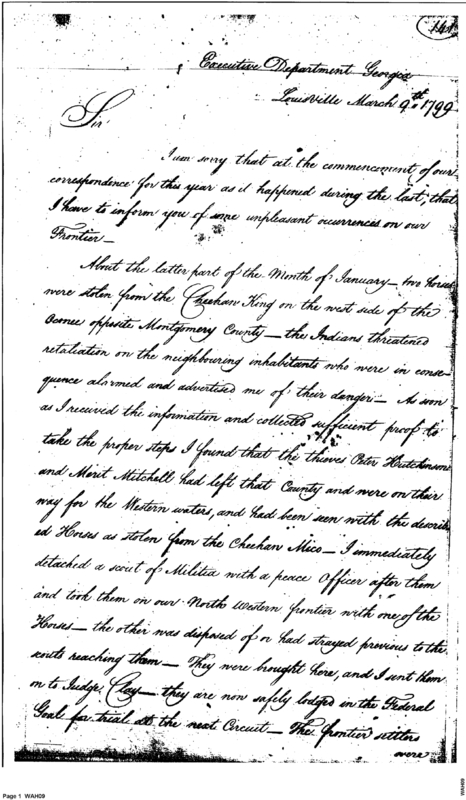 141
Executive Department Georgia
Louisville March 9th 1799
Sir
I am sorry that at the commencement of our
correspondence for this year as it happened during the last, that
I have to inform you of some unpleasant occurrences on our
Frontier—
About the latter part of the Month of January— two horses
were stolen from the Cheehaw King on the west side of the
Oconee opposite Montgomery County— the Indians threatened
retaliation on the neighbouring inhabitants who were in conse-
quence alarmed and advertised me of their danger— As soon
as I received the information and collected sufficient proof to
take the proper steps I found that the thieves Peter Hutchinson
and Merit Mitchell had left that County and were on their
way for the Western waters, and had been seen with the describ
ed Horses as stolen from the Cheehaw Mico— I immediately
detached a scout of Militia with a peace Officer after them
and took them on our North Western frontier with one of the
Horses— the other was disposed of or had strayed previous to the
scouts reaching them— They were brought here, and I sent them
on to Judge Clay— they are now safely lodged in the Federal
Goal for trial at the next Circuit— The frontier settlers
were
Page 1 WAH09
WAH09